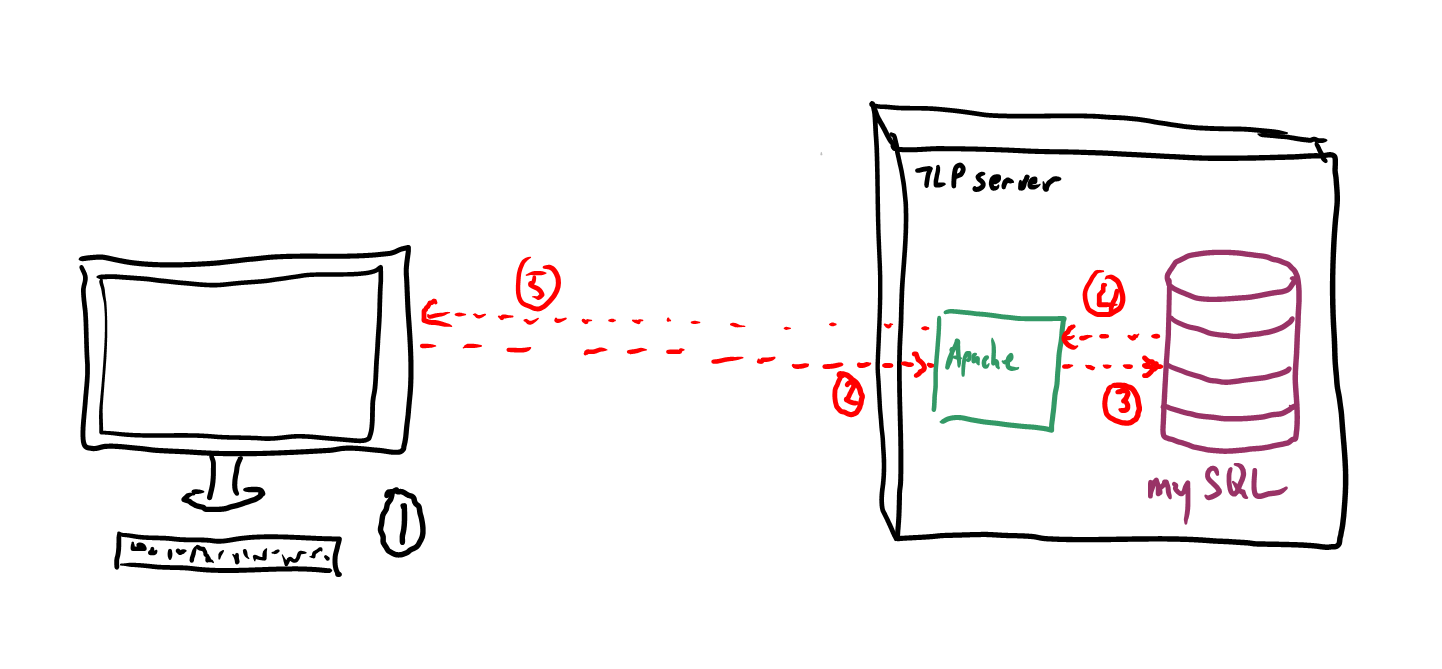 TLP server
5
4
Apache
2
3
my SQL
1